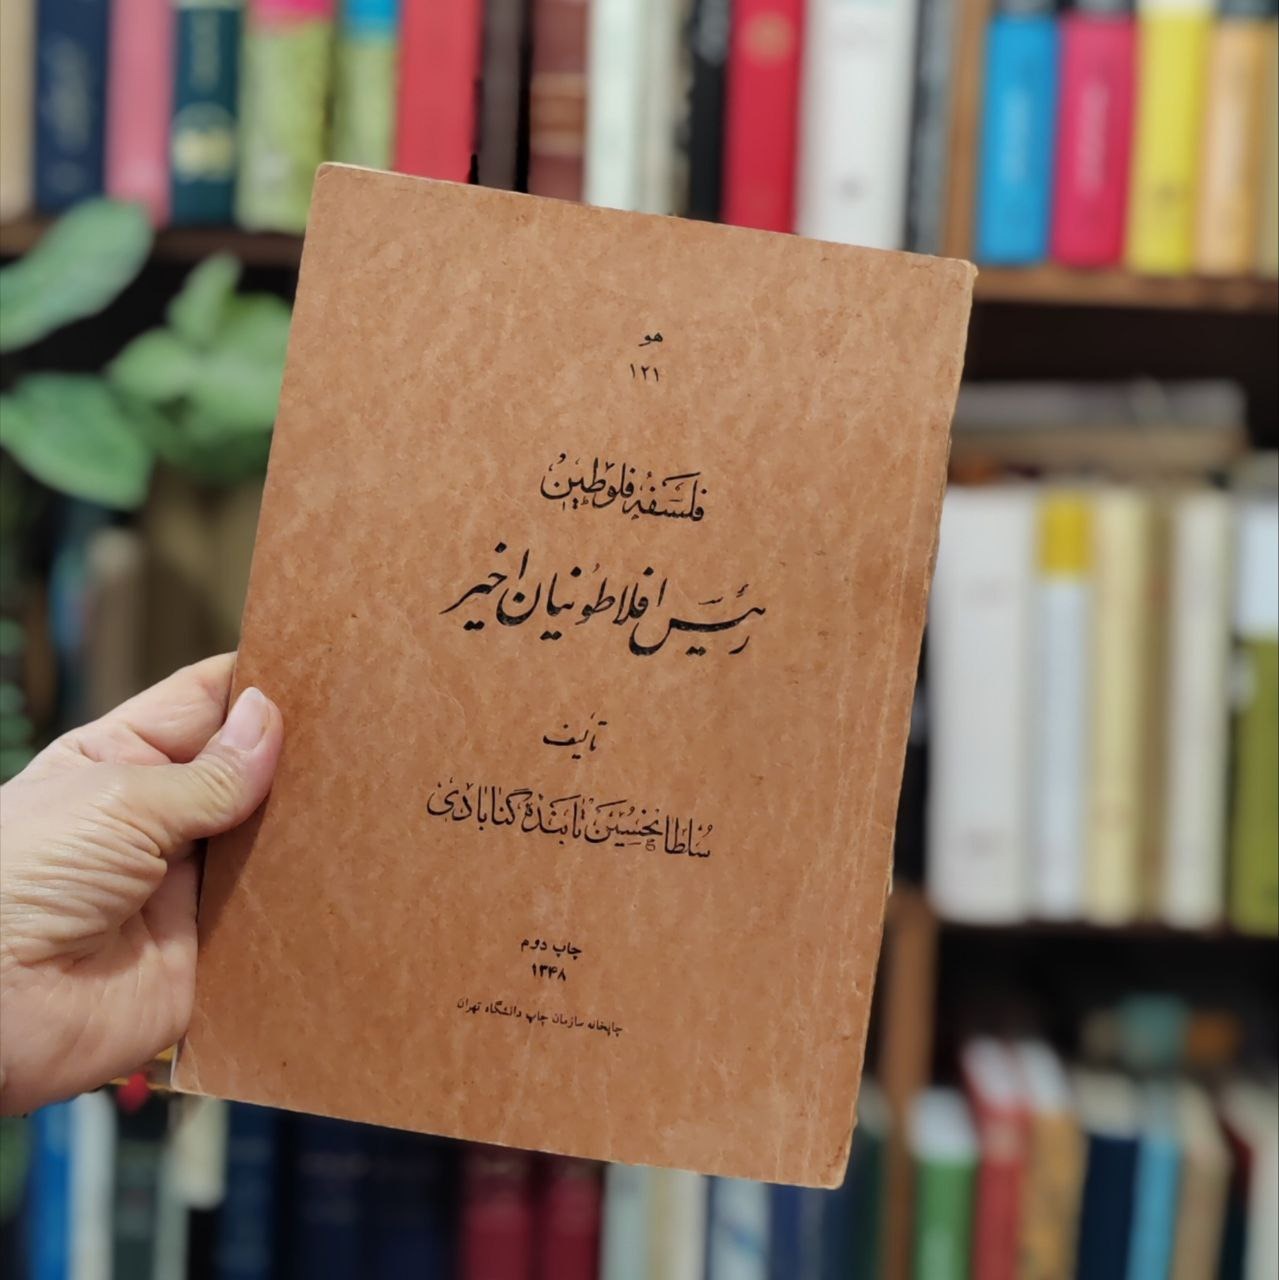 هو
۱۲۱
فلسفهٔ فلوطین
رئیس افلاطونیان اخیر
تألیف
سلطانحسین تابنده گنابادی
چاپ دوم
۱۳۴۸
چاپخانه سازمان چاپ دانشگاه تهران